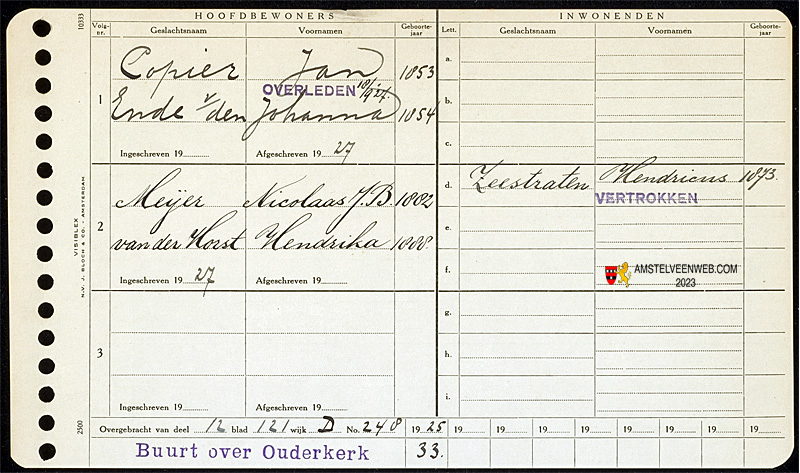 HOOFDBEWONERS INWONENDEN
Volg-nr. Geslachtsnaam Voornamen Geboorte-jaar Lett. Geslachtsnaam Voornamen Geboorte-jaar
10333
1
Copier Jan 1853
OVERLEDEN
Ende v/den Johanna 1854
Ingeschreven 19 Afgeschreven 19 27
a.
b.
c.
2
Meijer Nicolaas J.B. 1882
van der Horst Hendrika 1888
Ingeschreven 19 27 Afgeschreven 19
d. Zeestraten Hendricus 1873.
VERTROKKEN
e.
f.
AMSTELVEENWEB.COM
2023
3
Ingeschreven 19 Afgeschreven 19
g.
h.
i.
VISIBLEX
N.V. J. BLOCH & CO. - AMSTERDAM
2500
Overgebracht van deel 12 blad 121 wijk D No. 248 19 25 19 19 19 19 19 19 19
Buurt over Ouderkerk 33.